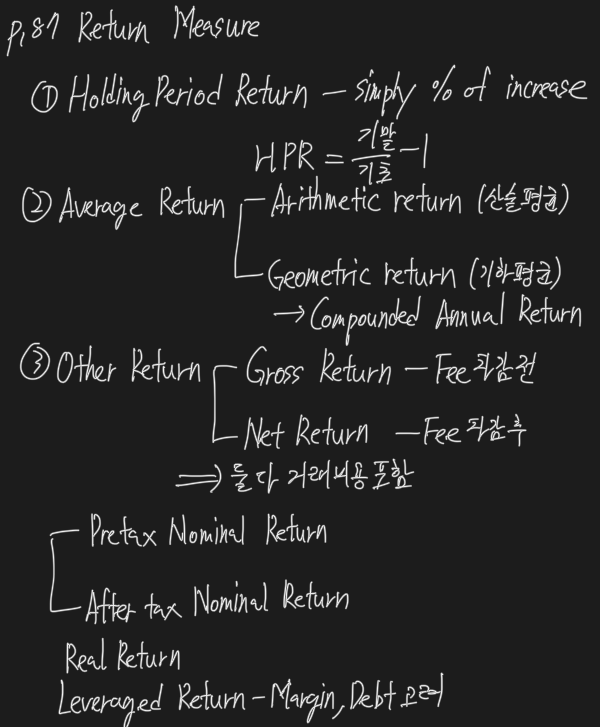 p.87 Return Measure
① Holding Period Return – simply % of increase
HPR = 기말/기초 - 1
② Average Return
Arithmetic return (산술평균)
Geometric return (기하평균)
→ Compounded Annual Return
③ Other Return
Gross Return – Fee 차감전
Net Return – Fee 차감후
⇒ 둘다 거래비용포함
Pretax Nominal Return
After tax Nominal Return
Real Return
Leveraged Return – Margin, Debt 고려